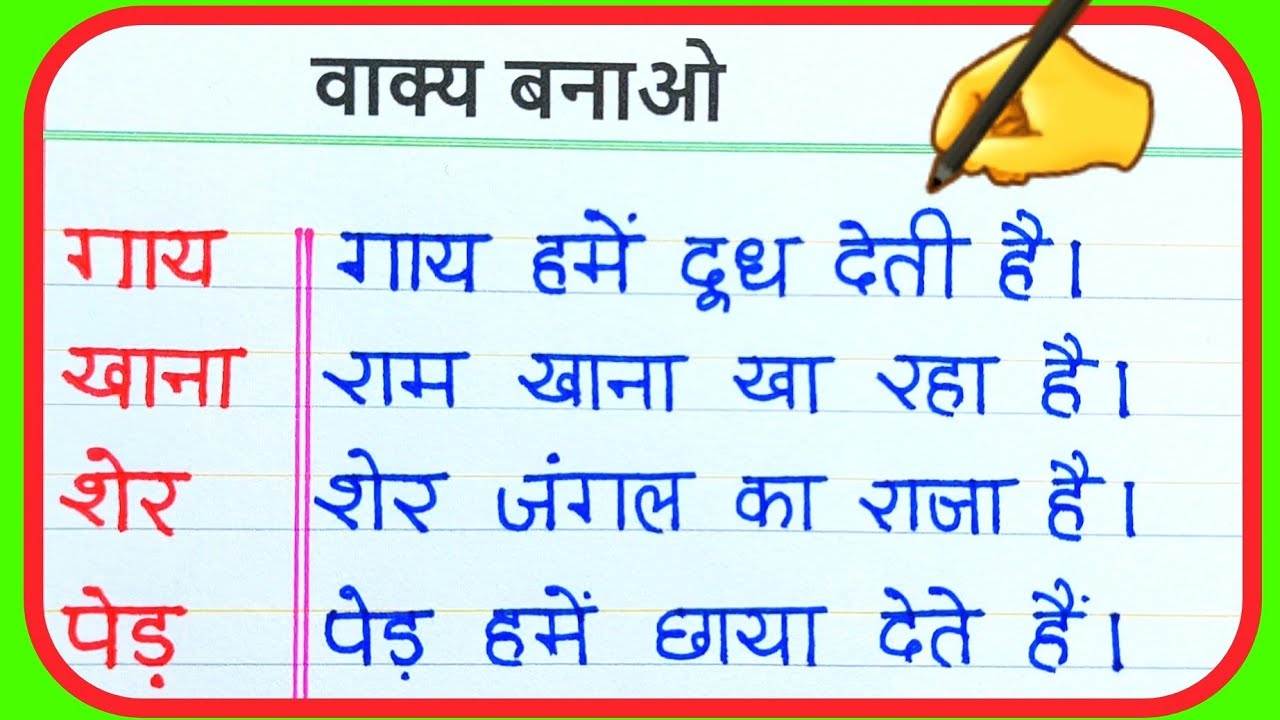 वाक्य बनाओ
गाय गाय हमें दूध देती है।
खाना राम खाना खा रहा है।
शेर शेर जंगल का राजा है।
पेड़ पेड़ हमें छाया देते हैं।